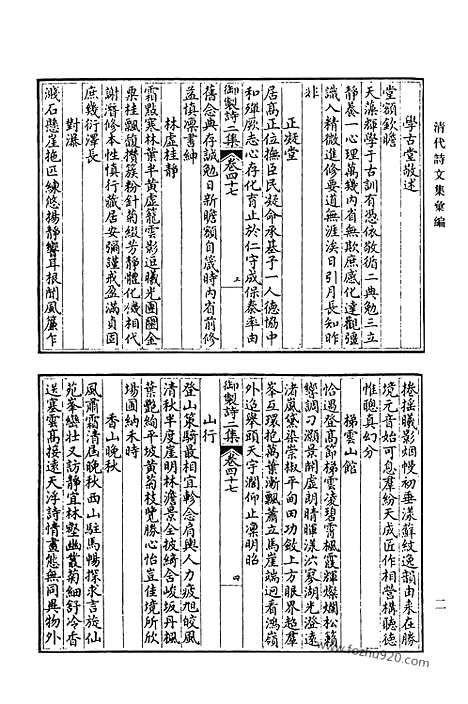 清代詩文集彙編
二
學古堂敬述
堂額欽瞻
天藻輝學于古訓有憑依敬循二典勉三立
靜養一心理萬幾內省無欺庶感化達觀彊
識入精微進修要道無涯涘日引月長知昨
非
正凝堂
居高正位撫臣民凝命承基子一人德協中
和殫厥志心存化育止於仁守成保泰率由
御製詩二集 卷四十七 上
舊念典存誠勉日新瞻額自箴時內省前修
益慎凜書紳
林虛桂靜
霜點寒林葉半黄虛籠雲影逗曦光團團金
粟桂飄馥攢簇粉針菊綴芳靜體化機相代
謝潛修本性慎行藏居安彌謹戒盈滿貞固
庶幾衍澤長
對瀑
濺石懸崖拖匹練悠揚靜響耳根聞風簾乍
捲搖曦影烟幔初垂漾蘇紋逸韻由來在勝
境元音始可息羣紛天成匠作相營構聽德
惟聰真幻分
梯雲山館
恰過登高節梯雲淩碧霄楓霞輝燦爛松籟
響調刁灝景削虛朗晴暉漾泬寥湖光澄遠
渚風黛染崇椒平向田功斂上方眼界超羣
峯互環抱萬葉漸飄蕭立馬崖端迥看鴻嶺
外遥舉頭天宇濶仰止凜明昭
御製詩二集 卷四十七 四
山行
登山策騎最相宜軫念肩輿人力疲旭皎風
清秋半度崖明林澹景全披綺舍峻坂丹楓
葉艷絢平坡黄菊枝覽勝心怡豈佳境所欣
場圃納禾時
香山晚秋
風肅霜清屆晚秋西山駐馬暢探求言旋仙
苑峯巒壯又訪靜宜林壑幽叢菊細舒冷香
送塞雲高接遠天浮詩情畫態無同異物外